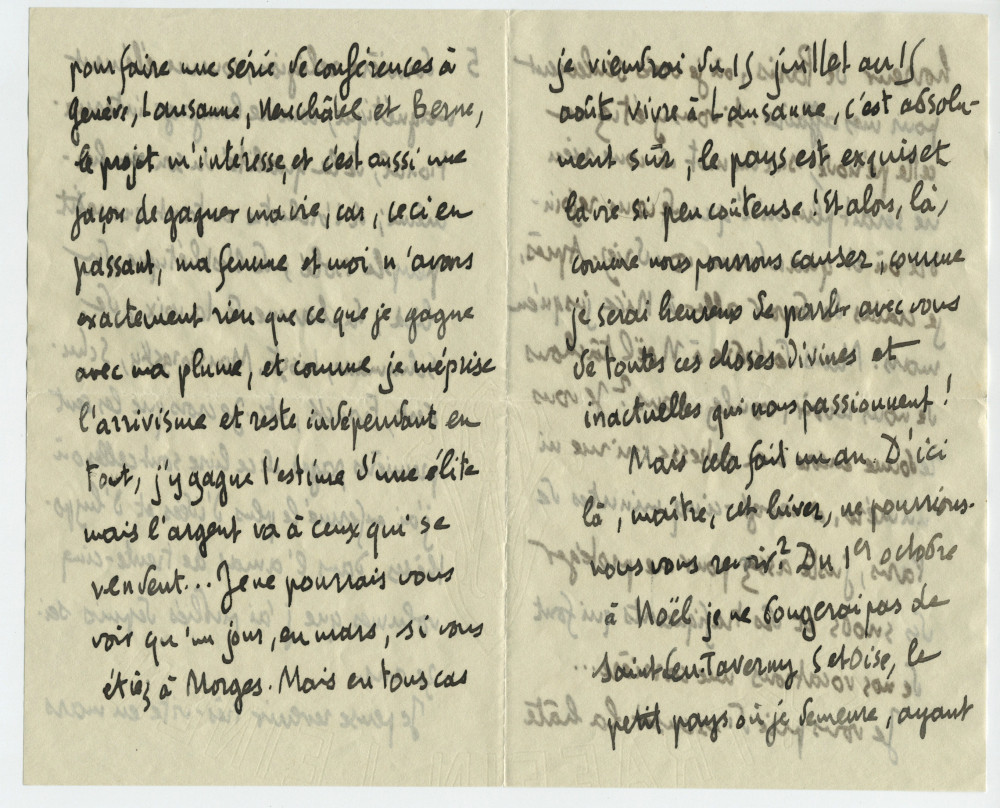 pour faire une série de conférences à
Genève, Lausanne, Neuchâtel et Berne,
le projet m'intéresse, et c'est aussi une
façon de gagner ma vie, car, ceci en
passant, ma femme et moi n'avons
exactement rien que ce que je gagne
avec ma plume, et comme je méprise
l'arrivisme et reste indépendant en
tout, j'y gagne l'estime d'une élite
mais l'argent va à ceux qui se
vendent... Je ne pourrais vous
voir qu'un jour, en mars, si vous
étiez à Morges. Mais en tous cas
je viendrai du 15 juillet au 15
août vivre à Lausanne, c'est absolu-
ment sûr, le pays est exquis et
la vie si peu coûteuse ! Et alors, là,
comme nous pourrons causer, comme
je serai heureux de parler avec vous
de toutes ces choses divines et
inactuelles qui nous passionnent !
Mais cela fait un an. D'ici
là, maître, cet hiver, ne pourrions-
nous vous revoir ? Du 1er octobre
à Noël je ne bougerai pas de
Saint-Leu-Taverny, S et Oise, le
petit pays où je demeure, ayant